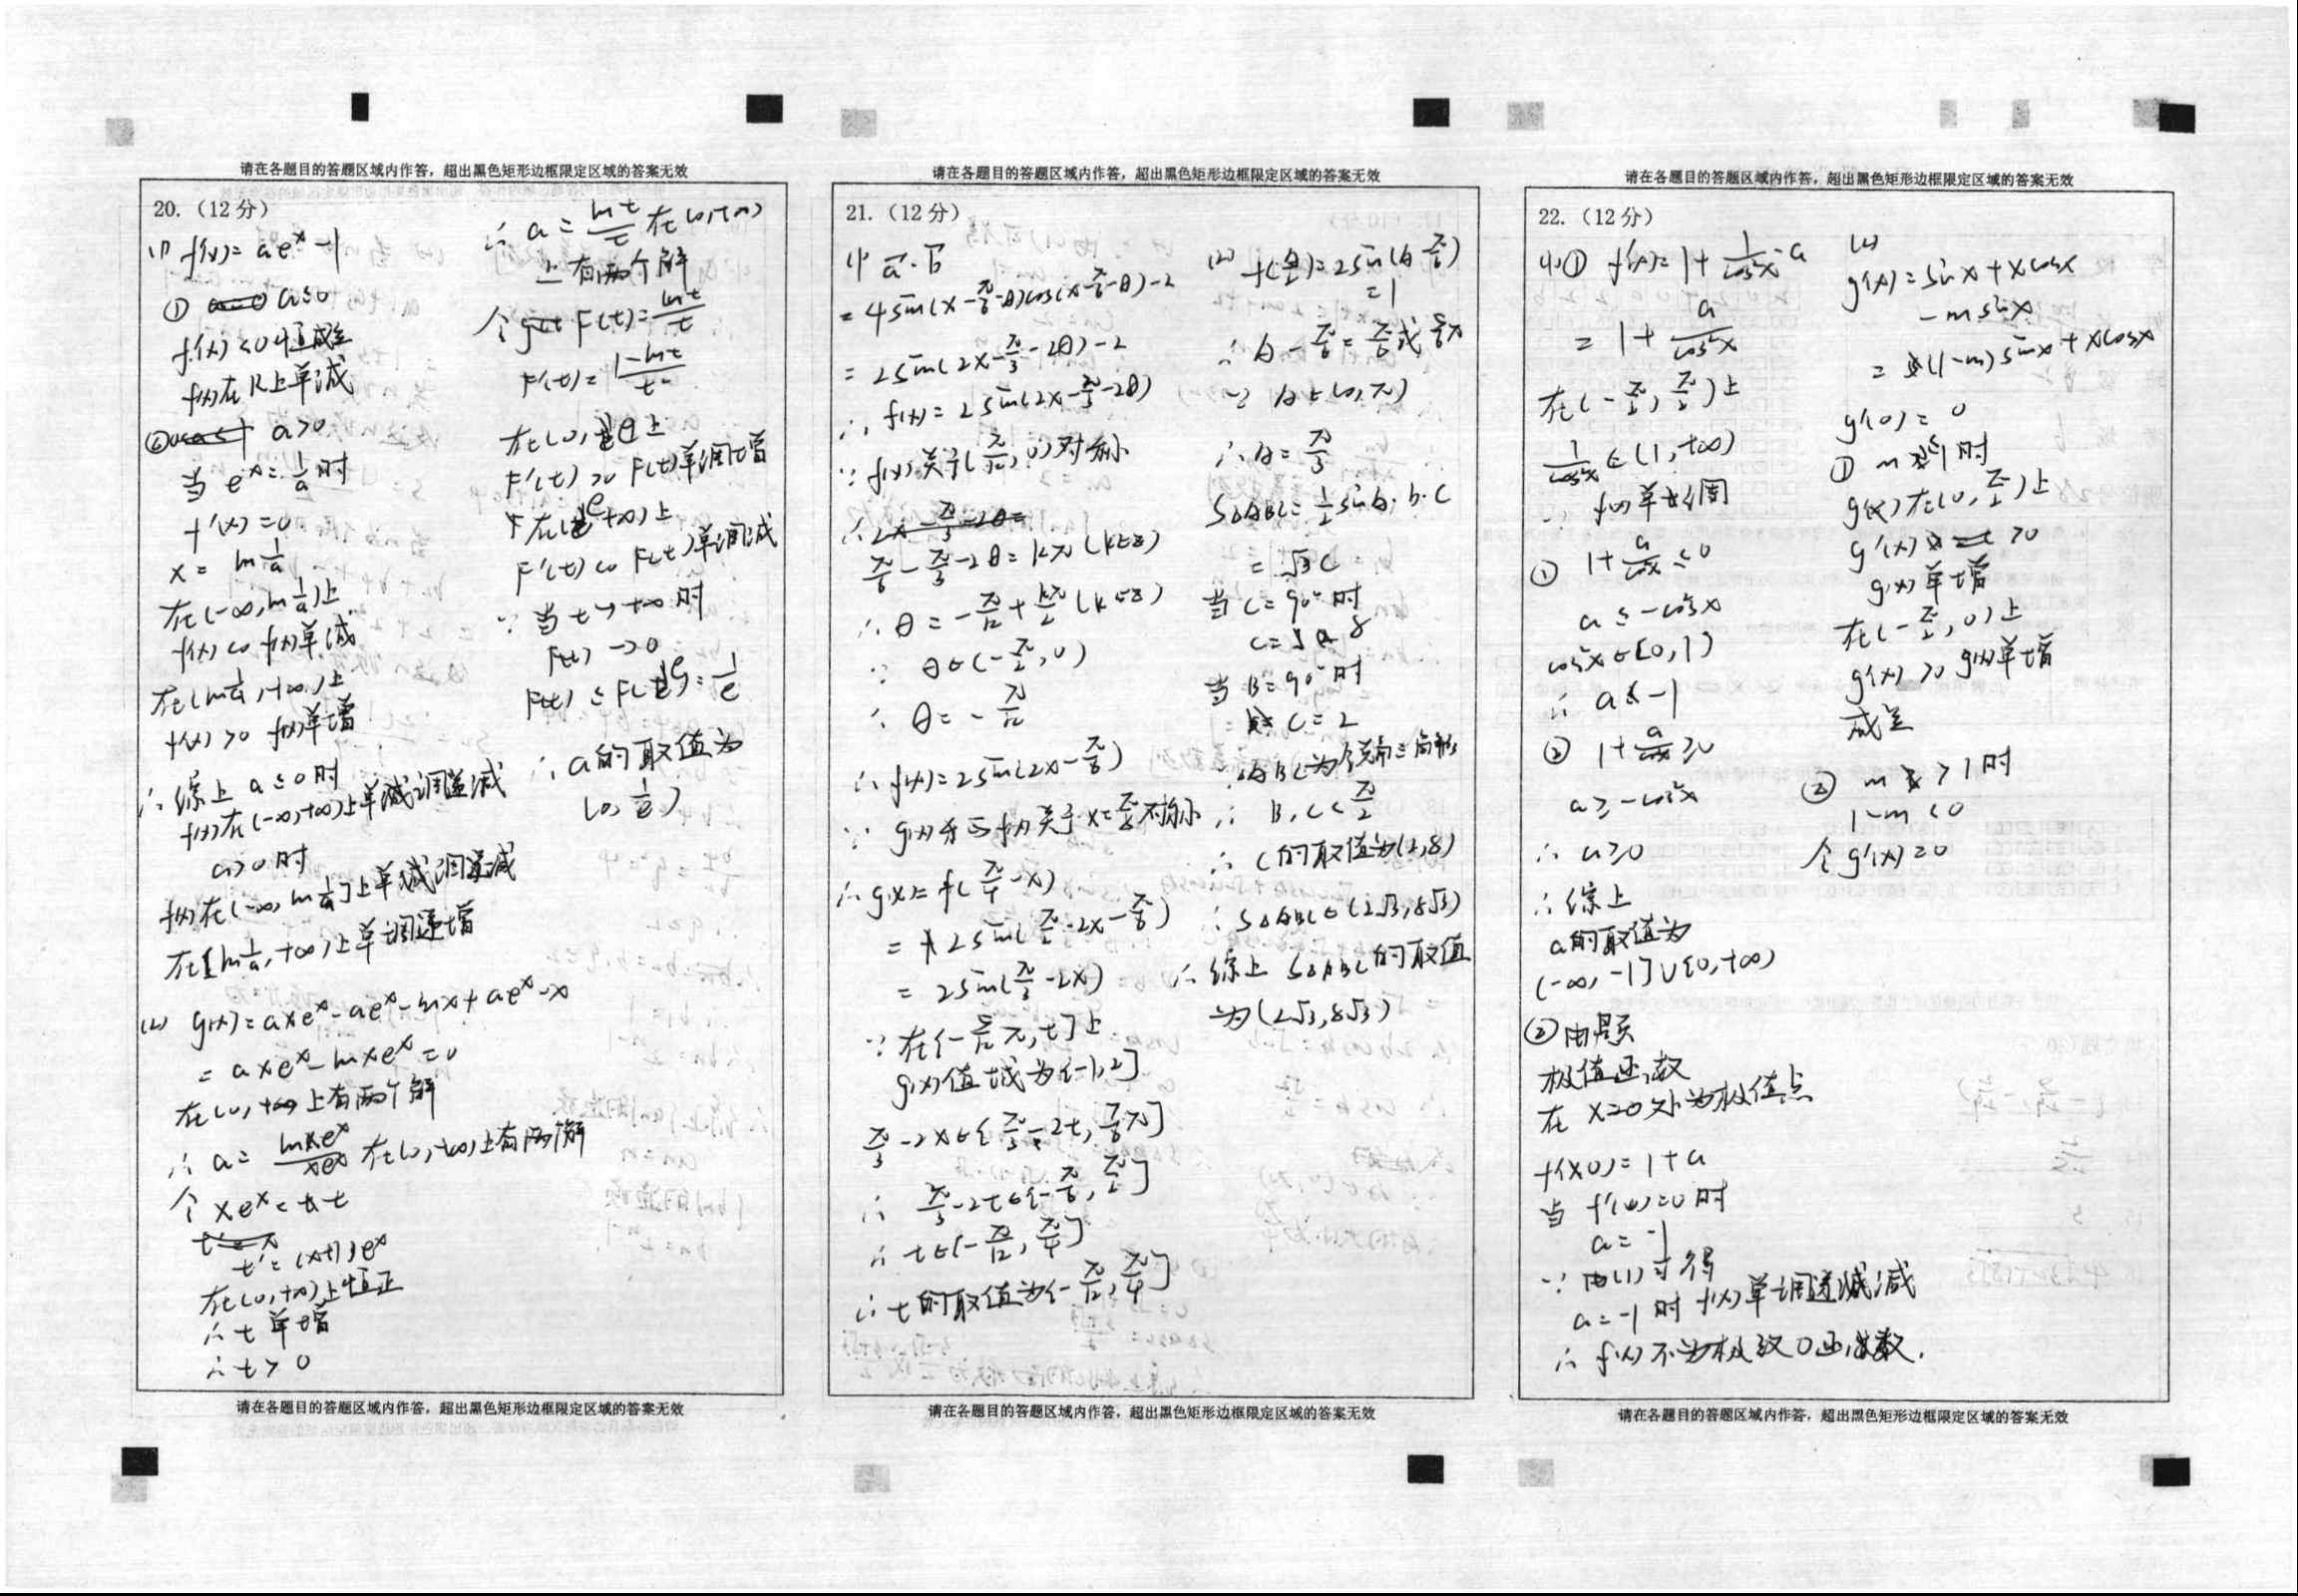 请在各题目的答题区域内作答，超出黑色矩形边框限定区域的答案无效
20.（12分）
(1) f'(x)=ae^x-1
① a≤0
f'(x)<0恒成立
f(x)在R上单减
② a>0
当 e^x=1/a 时
f'(x)=0
x=ln 1/a
在(-∞,ln 1/a)上
f'(x)<0 f(x)单减
在(ln 1/a,+∞)上
f'(x)>0 f(x)单增
∴综上 a≤0时
f(x)在(-∞,+∞)上单调递减
a>0时
f(x)在(-∞,ln 1/a]上单调递减
在[ln 1/a,+∞)上单调递增
(2) g(x)=axe^x-ae^x-lnx+ae^x-x
=axe^x-lnxe^x=0
在(0,+∞)上有两个解
∴a=lnxe^x/xe^x 在(0,+∞)上有两解
令 xe^x=t
t'=(x+1)e^x
在(0,+∞)上恒正
∴t单增
∴t>0
∴a=lnt/t 在(0,+∞)
上有两个解
令 F(t)=lnt/t
F'(t)=(1-lnt)/t²
在(0,e)上
F'(t)>0 F(t)单调增
在(e,+∞)上
F'(t)<0 F(t)单调减
∵当t→+∞时
F(t)→0
F(t)≤F(e)=1/e
∴a的取值为
(0,1/e)
请在各题目的答题区域内作答，超出黑色矩形边框限定区域的答案无效
请在各题目的答题区域内作答，超出黑色矩形边框限定区域的答案无效
21.（12分）
(1) a·b
=4sin(x-π/6-θ)cos(x-π/6-θ)-2
=2sin(2x-π/3-2θ)-2
∴f(x)=2sin(2x-π/3-2θ)
∵f(x)关于(π/12,0)对称
∴π/6-π/3-2θ=kπ(k∈z)
∴θ=-π/12+kπ/2(k∈z)
∵θ∈(-π/2,0)
∴θ=-π/12
∴f(x)=2sin(2x-π/6)
∵g(x)和f(x)关于x=π/8对称
∴g(x)=f(π/4-x)
=2sin(π/2-2x-π/6)
=2sin(π/3-2x)
∵在(-5/12π,t]上
g(x)值域为(-1,2]
π/3-2x∈[π/3-2t,7/6π]
∴π/3-2t∈(-π/6,π/2]
∴t∈[-π/12,π/4]
∴t的取值为[-π/12,π/4]
(2) f(A/2)=2sin(A-π/6)
=1
∴A-π/6=π/6或5/6π
∵A∈(0,π)
∴A=π/3
S△ABC=1/2sinA·b·c
=√3c
当C=90°时
c=8
当B=90°时
c=2
∵△ABC为锐角三角形
∴B,C<π/2
∴c的取值为(2,8)
∴S△ABC∈(2√3,8√3)
∴综上 S△ABC的取值
为(2√3,8√3)
请在各题目的答题区域内作答，超出黑色矩形边框限定区域的答案无效
请在各题目的答题区域内作答，超出黑色矩形边框限定区域的答案无效
22.（12分）
(1)① f'(x)=1+1/cos²x·a
=1+a/cos²x
在(-π/2,π/2)上
1/cos²x∈(1,+∞)
∵f(x)单调
① 1+a/cos²x≤0
a≤-cos²x
cos²x∈[0,1)
∴a≤-1
② 1+a/cos²x≥0
a≥-cos²x
∴a≥0
∴综上
a的取值为
(-∞,-1]∪[0,+∞)
②由题
在x=0处为极值点
f'(x0)=1+a
当f'(0)=0时
a=-1
∵由(1)可得
a=-1时f(x)单调递减
∴f(x)不为极致0函数.
(2)
g'(x)=sinx+xcosx
-msinx
=(1-m)sinx+xcosx
g'(0)=0
① m≤1时
g(x)在(0,π/2)上
g'(x)>0
g(x)单增
在(-π/2,0)上
g'(x)>0 g(x)单增
成立
② m>1时
1-m<0
令g'(x)=0
请在各题目的答题区域内作答，超出黑色矩形边框限定区域的答案无效